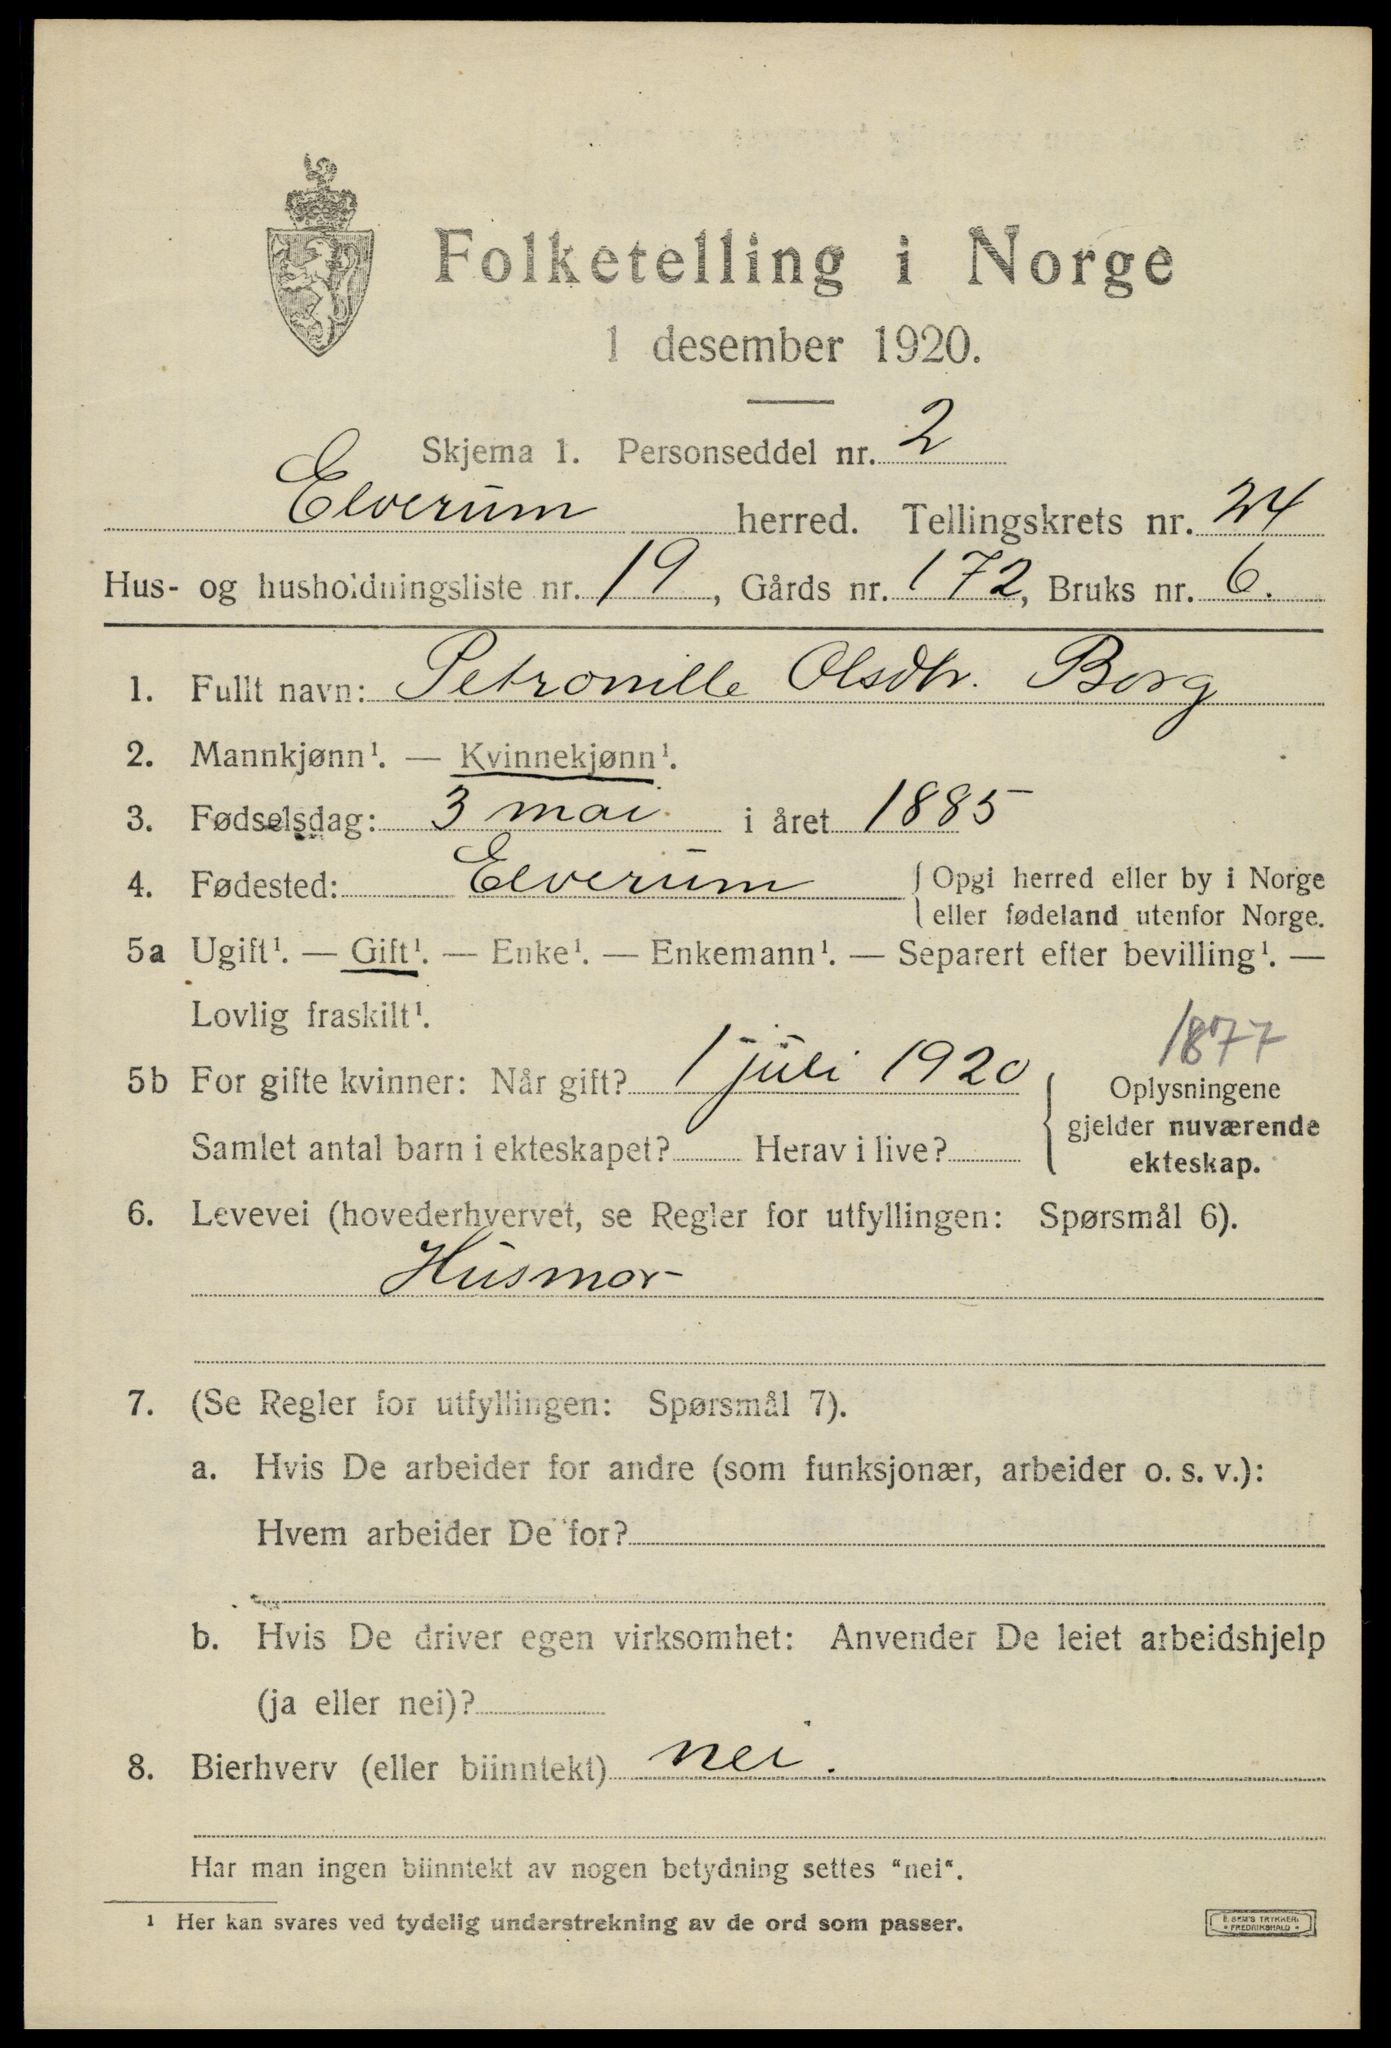 Folketelling i Norge
1 desember 1920.
Skjema 1. Personseddel nr. 2
Elverum herred. Tellingskrets nr. 24
Hus- og husholdningsliste nr. 19, Gårds nr. 172, Bruks nr. 6.
1. Fullt navn: Petronille Olsdtr. Borg
2. Mannkjønn¹. — Kvinnekjønn¹.
3. Fødselsdag: 3 mai i året 1885
4. Fødested: Elverum { Opgi herred eller by i Norge
eller fødeland utenfor Norge.
5a Ugift¹. — Gift¹. — Enke¹. — Enkemann¹. — Separert efter bevilling¹. —
Lovlig fraskilt¹.
1877
5b For gifte kvinner: Når gift? 1 juli 1920 { Oplysningene
gjelder nuværende
Samlet antal barn i ekteskapet? Herav i live?
ekteskap.
6. Levevei (hovederhvervet, se Regler for utfyllingen: Spørsmål 6).
Husmor
7. (Se Regler for utfyllingen: Spørsmål 7).
a. Hvis De arbeider for andre (som funksjonær, arbeider o. s. v.):
Hvem arbeider De for?
b. Hvis De driver egen virksomhet: Anvender De leiet arbeidshjelp
(ja eller nei)?
8. Bierhverv (eller biinntekt) nei.
Har man ingen biinntekt av nogen betydning settes "nei".
¹ Her kan svares ved tydelig understrekning av de ord som passer.
E. SEM'S TRYKKERI
* FREDRIKSHALD *